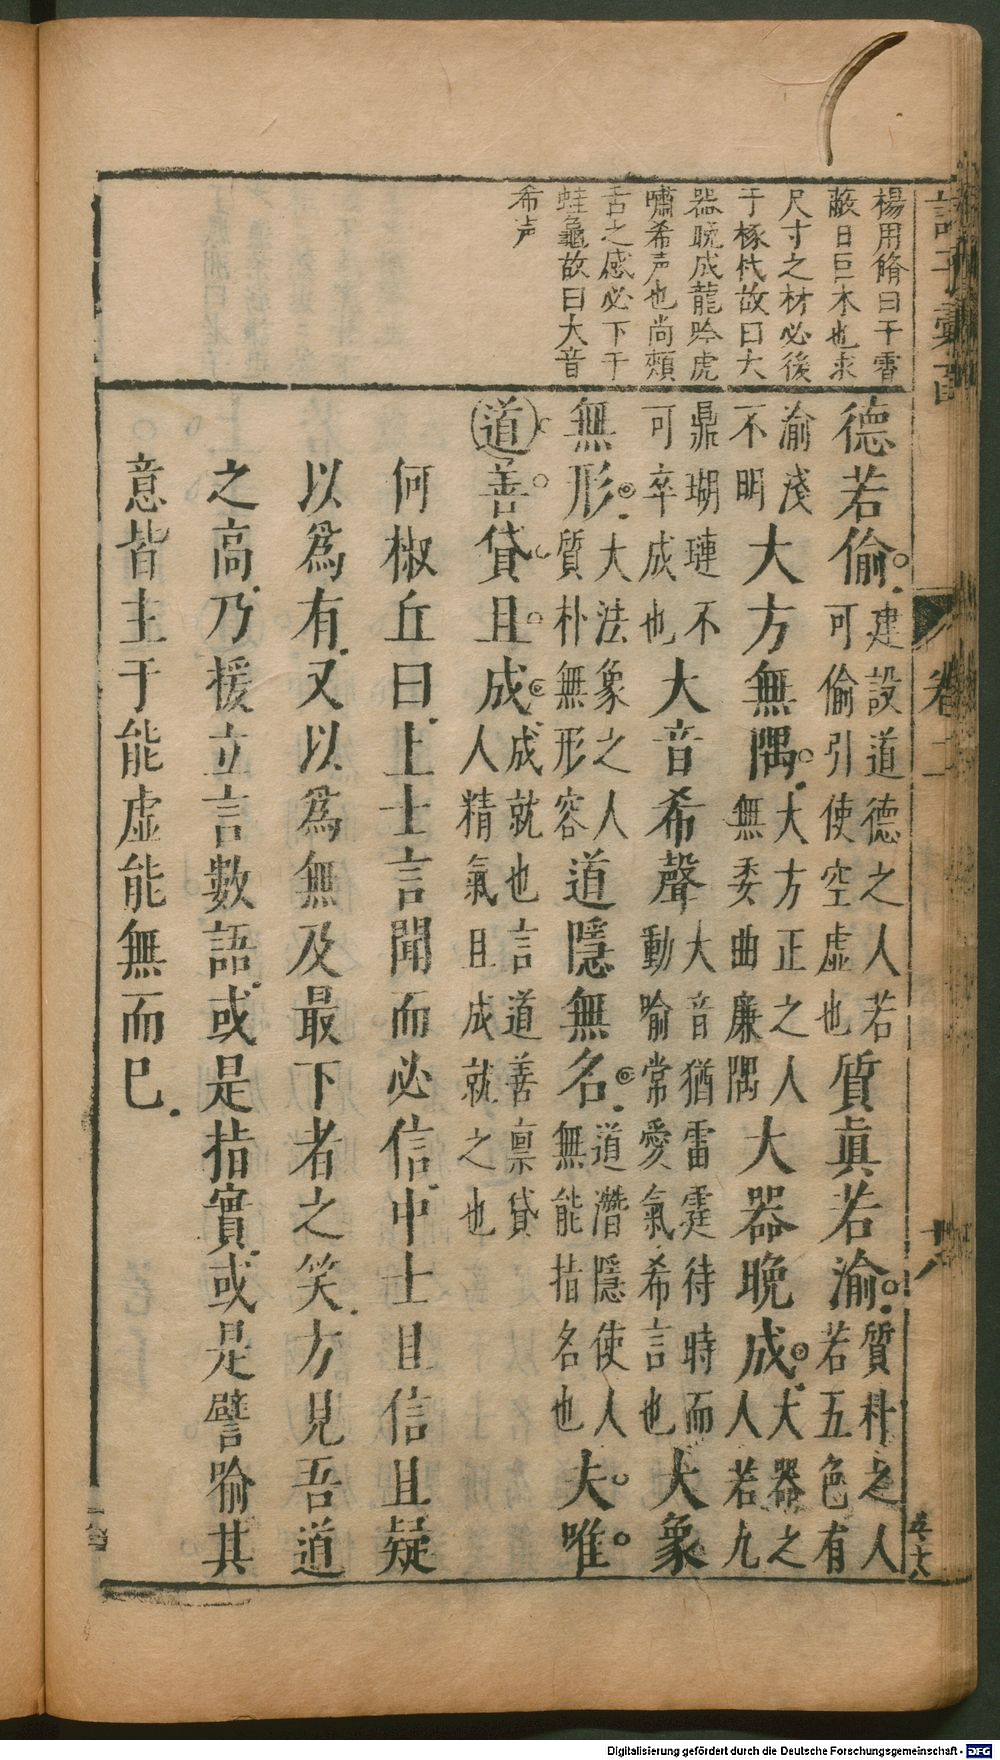 諸子彙函 卷二 十八
楊用脩曰干霄
蔽日巨木也求
尺寸之材必後
于椓杙故曰大
器晚成龍吟虎
嘯希声也尚頰
舌之感必下于
蛙黽故曰大音
希声
德若偷。建設道德之人若可偷引使空虛也質眞若渝。質朴之人若五色有
渝淺不明大方無隅。大方正之人無委曲廉隅大器晚成。大器之人若九
鼎瑚璉不可卒成也大音希聲大音猶雷霆待時而動喻常愛氣希言也大象
無形。大法象之人質朴無形容道隱無名。道潛隱使人無能指名也夫唯
道善貸且成。成就也言道善禀貸人精氣且成就之也
何椒丘曰上士言聞而必信中士且信且疑
以爲有又以爲無及最下者之笑方見吾道
之高乃援立言數語或是指實或是譬喻其
意皆主于能虛能無而巳